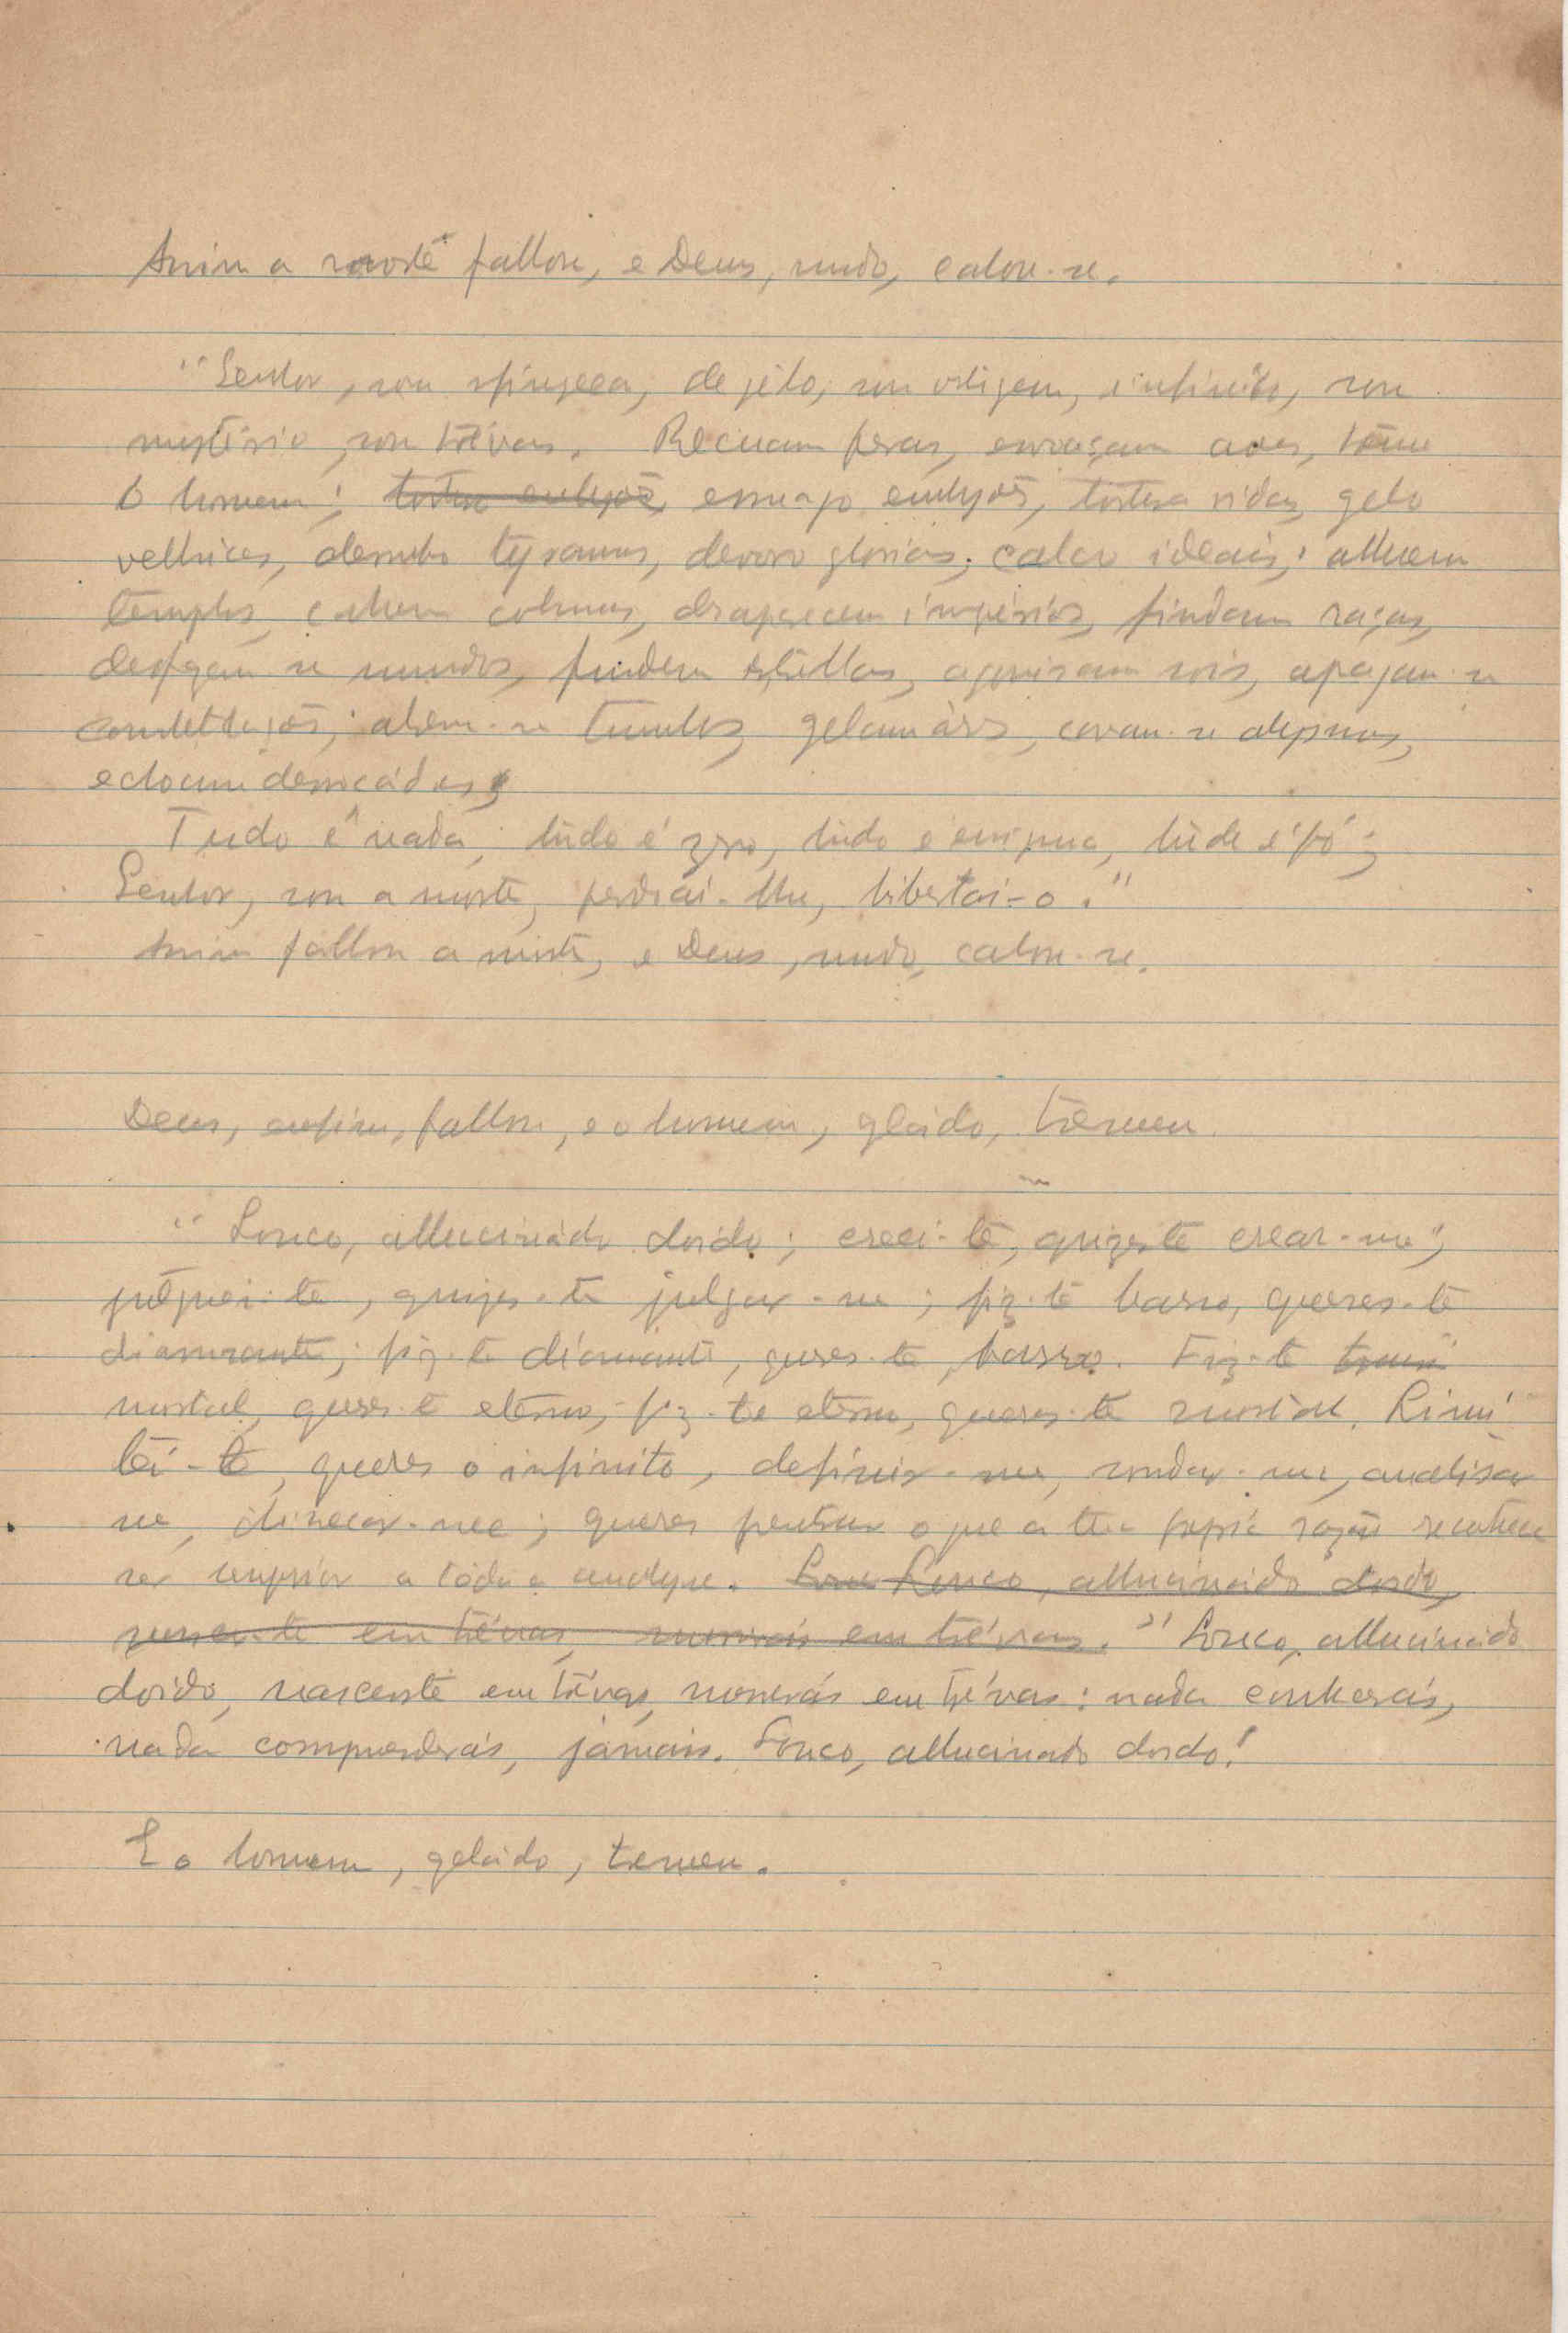 Assim a morte fallou, e Deus, mudo, calou-se.
"Senhor, sou sphingea, de gêlo, sou vertigem, infinito, sou
mystério, sou trévas. Recuam feras, aves, teme
o homem; esmago embryões, torturo vidas, gelo
velhices, derrubo tyrannos, devoro glorias, calco ideais; alluem
templos, cahem colunas, desaparecem impérios, findam raças,
se mundos, fundem estrellas, agonisam sóis, apagam-se
constellações; abrem-se tumulos, gelam áres, cavam-se abysmos,
ecloum
Tudo é nada, tudo é zero, tudo é enigma, tudo é pó;
Senhor, sou a morte, perdoai-lhe, libertai-o."
Assim fallou a morte, e Deus, mudo, calou-se.
Deus, enfim, fallou, e o homem, gelado, tremeu
"Louco, allucinado doido; creei-te, quizeste crear-me;
julguei-te, quizes-te julgar-me; fiz-te barro, queres-te
diammante; fiz-te diamante, queres-te barro. Fiz-te
mortal, queres-te eterno; fiz-te eterno, queres-te mortal. Limi
tei-te, queres o infinito, definir-me, sondar-me, analisar
me, dissecar-me; queres penetrar o que a tua propria razão reconhece
ser superior a tôda a analyse. Louco, allucinado doido,
em trévas, morrerás em trévas." Louco, allucinado
doido, nasceste em trévas, morrerás em trévas: nada conhecerás,
nada comprenderás, jamais. Louco, allucinado doido!
E o homem, gelado, tremeu.